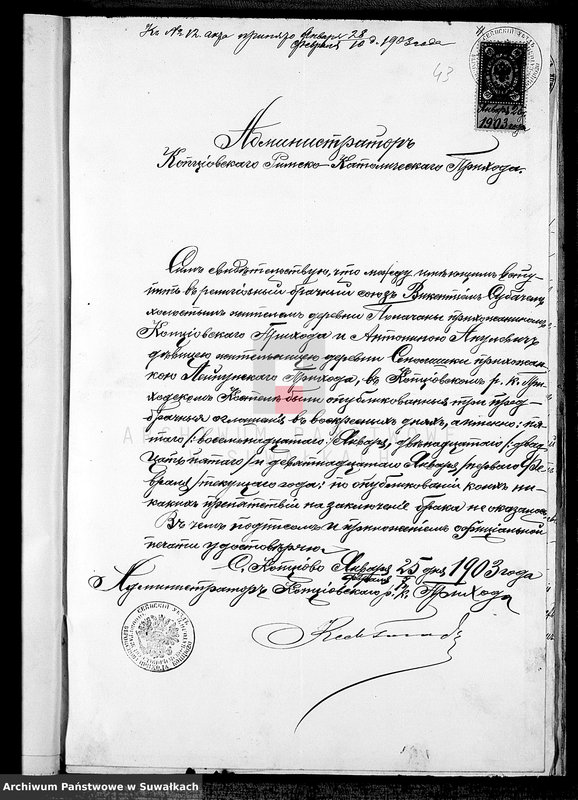 Къ № 12 акта принято Января 28
Февраля 10 д. 1903 года
43
Января 28
1903 года
Администраторъ
Копціовскаго Римско-Католическаго Прихода.
Симъ свидѣтельствую, что между имѣющимъ всту-
пить въ религіозный брачный союзъ Викентіемъ
холостымъ жителемъ деревни прихожаниномъ
Копціовскаго Прихода и Антониною
дѣвицею жительницею деревни прихожан-
кою Лейпунскаго Прихода, въ Копціовскомъ р. к. При-
ходскомъ Костелѣ были опубликованныя три пред-
брачныя оглашенія въ воскресныхъ дняхъ, а именно: пя-
таго /восемнадцатаго/ Января, двѣнадцатаго /двад-
цать пятаго/ и девятнадцатаго Января /перваго Фе-
враля/ текущаго года; по опубликованіи коихъ ни-
какихъ препятствій на заключеніе брака не оказалось,
Въ чемъ подписомъ и приложеніемъ оффиціальной
печати удостовѣряю.
С. Копціово Января 25 дня 1903 года
Февраля 7
Администраторъ Копціовскаго р. к. Прихода
ARCHIWUM PAŃSTWOWE
W SUWAŁKACH
Archiwum Państwowe w Suwałkach